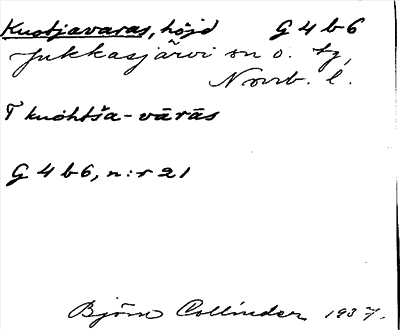 Kustjavaras, höjd G 4 b 6
Jukkasjärvi sn o. tg,
Norrb. l.
T kuohtša-vārās
G 4 b 6, n:r 21
Björn Collinder 1937.